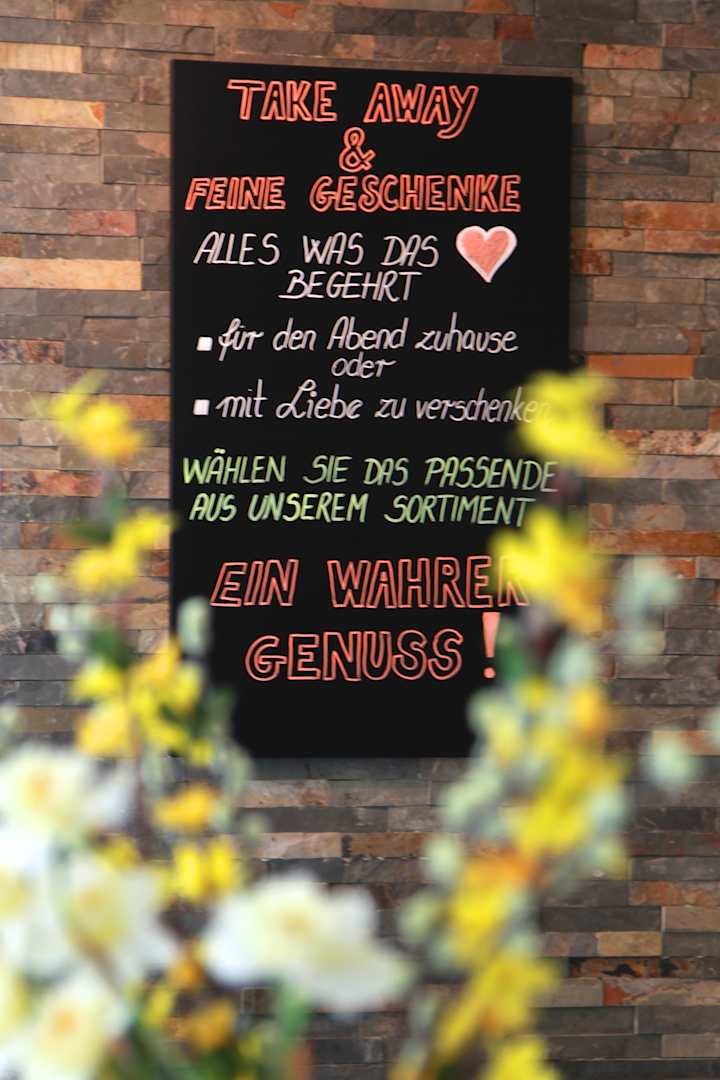 TAKE AWAY
&
FEINE GESCHENKE
ALLES WAS DAS
BEGEHRT
für den Abend zuhause
oder
mit Liebe zu verschenken
WÄHLEN SIE DAS PASSENDE
AUS UNSEREM SORTIMENT
EIN WAHRER
GENUSS!